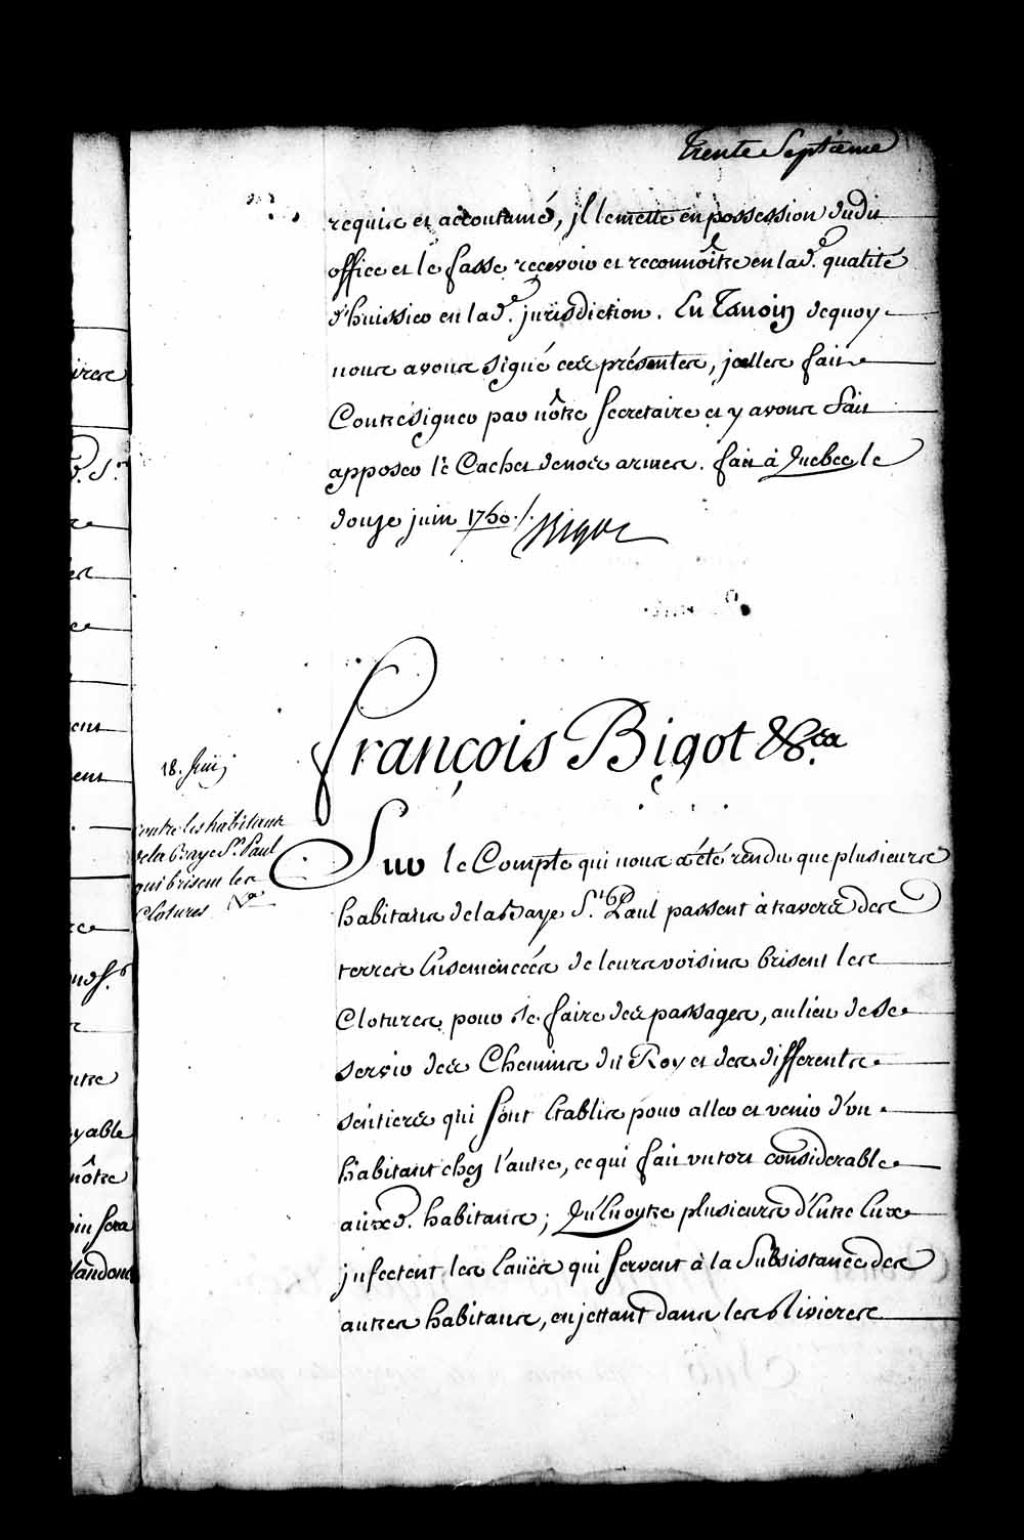 Trente Septieme
requise et accoutumé, jl le mette en possession dudit
office et le fasse recevoir et reconnoître en lad.e qualité
d'huissier en lad.e jurisdiction. En Temoin dequoy
nous avons signé ces présentes, jcelles fait
Contresigner par nôtre Secretaire et y avons fait
apposer le Cachet denos armes. fait à Quebec le
douze juin 1750./. Bigot
François Bigot &.ca
18. Juin
Contre les habitans
dela Baye St. Paul
qui brisent les
Clotures &a
Sur le Compte qui nous a été rendu que plusieurs
habitans dela Baye St. Paul passent à travers des
terres Ensemencées de leurs voisins brisent les
Clotures pour se faire des passages, aulieu de se
servir des Chemins du Roy et des differents
sentiers qui sont Etablis pour aller et venir d'un
habitant chez l'autre, ce qui fait un tort considerable
auxd. habitans; Qu'En oytre plusieurs d'Entre Eux
jnfectent les Eaües qui servent à la Subsistance des
autres habitans, en jettant dans les Rivieres
irer
S.r
ens
ens
utre
yable
nôtre
sera